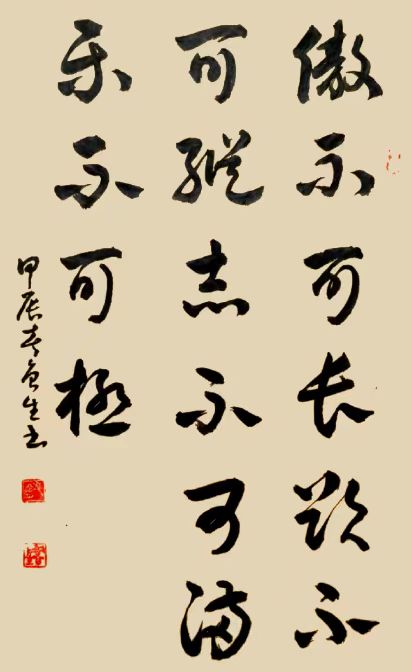 傲不可长欲不
可縱志不可满
乐不可极
甲辰春生书